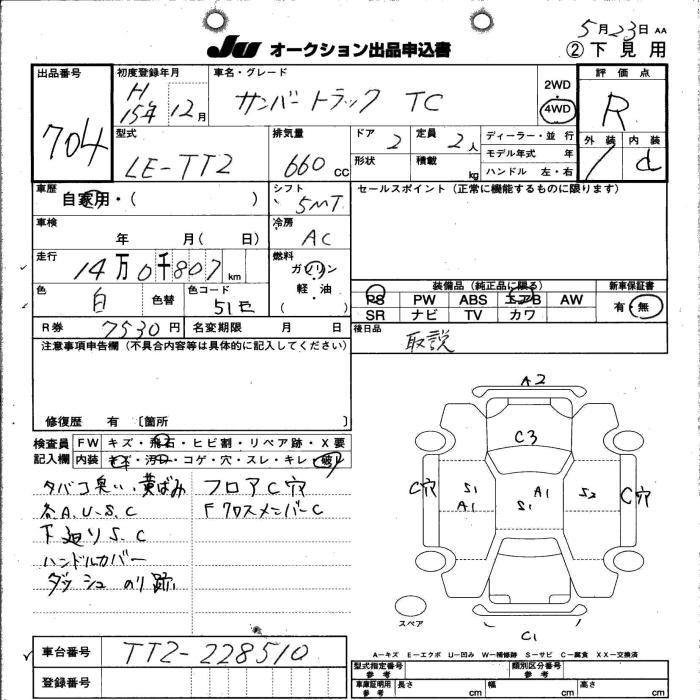 5月23日 AA
JU オークション出品申込書
②下見用
出品番号 初度登録年月 車名・グレード 評価点
704
H15年12月
サンバートラック TC
2WD
4WD
R
外装 内装
1 d
型式 排気量 ドア 定員 ディーラー・並行
LE-TT2 660cc 2 2人
形状 積載 kg
モデル年式 年
ハンドル 左・右
車歴
自家用・( )
シフト
5MT
セールスポイント(正常に機能するものに限ります)
車検
年 月( 日)
冷房
AC
走行
14万0千807km
燃料
ガソリン
軽・油
( )
色 白 色替 色コード 51E
装備品(純正品に限る) 新車保証書
PS PW ABS エアB AW
SR ナビ TV カワ
有・無
R券 7530円 名変期限 月 日
後日品
取説
注意事項申告欄(不具合内容等は具体的に記入してください)
修復歴 有 〔箇所 〕
検査員記入欄
FW キズ・飛石・ヒビ割・リペア跡・X要
内装 キズ・汚れ・コゲ・穴・スレ・キレ・破れ
タバコ臭い・黄ばみ
各A.U.S.C
下廻りS.C
ハンドルカバー
ダッシュ のり跡
フロアC穴
FクロスメンバーC
A2
C3
C穴 S1 A1 A1 S1 S2 C穴
スペア
C1
A-キズ E-エクボ U-凹み W-補修跡 S-サビ C-腐食 XX-交換済
車台番号 TT2-228510
登録番号
型式指定番号 参考 類別区分番号 参考
車庫証明用 参考 長さ cm 幅 cm 高さ cm